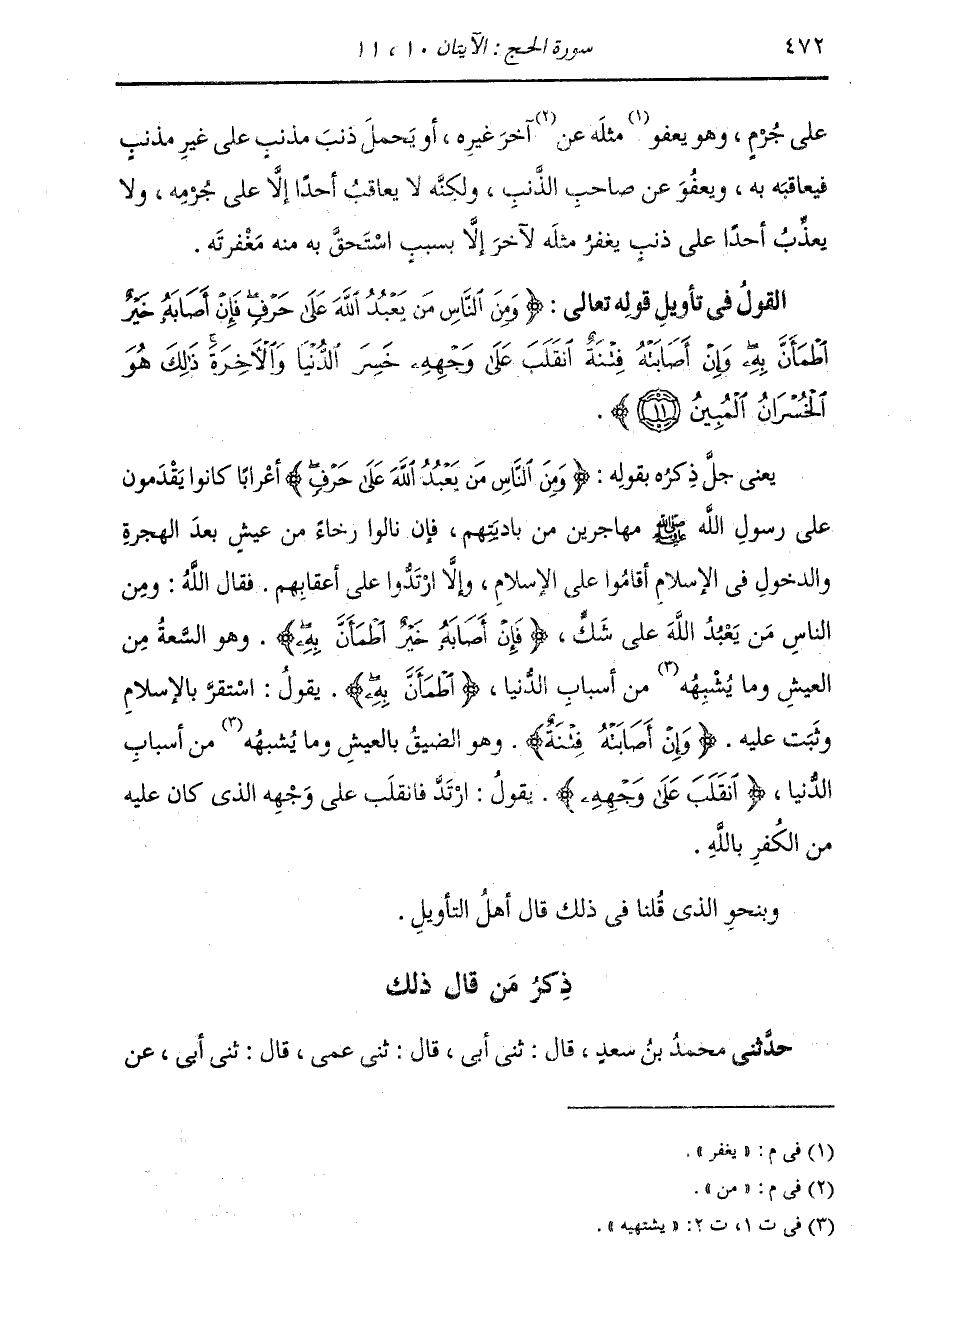 ٤٧٢ سورة الحج : الآيتان ١٠ ، ١١
على جُرْمٍ ، وهو يعفو(١) مثلَه عن(٢) آخرَ غيرِه ، أو يَحملَ ذنبَ مذنبٍ على غيرِ مذنبٍ
فيعاقبَه به ، ويعفُوَ عن صاحبِ الذَّنبِ ، ولكنَّه لا يعاقبُ أحدًا إلَّا على جُرْمِه ، ولا
يعذِّبُ أحدًا على ذنبٍ يغفرُ مثلَه لآخرَ إلَّا بسببٍ اسْتَحقَّ به منه مَغْفرتَه .
القولُ فى تأويلِ قولِه تعالى : ﴿ وَمِنَ ٱلنَّاسِ مَن يَعْبُدُ ٱللَّهَ عَلَىٰ حَرْفٍۖ فَإِنْ أَصَابَهُۥ خَيْرٌ
ٱطْمَأَنَّ بِهِۦۖ وَإِنْ أَصَابَتْهُ فِتْنَةٌ ٱنقَلَبَ عَلَىٰ وَجْهِهِۦ خَسِرَ ٱلدُّنْيَا وَٱلْأَخِرَةَۚ ذَٰلِكَ هُوَ
ٱلْخُسْرَانُ ٱلْمُبِينُ ١١ ﴾ .
يعنى جلَّ ذِكرُه بقولِه : ﴿ وَمِنَ ٱلنَّاسِ مَن يَعْبُدُ ٱللَّهَ عَلَىٰ حَرْفٍۖ ﴾ أعْرابًا كانوا يَقْدَمون
على رسولِ اللَّه ﷺ مهاجرين من باديَتِهم ، فإن نالوا رخاءً من عيشٍ بعدَ الهجرةِ
والدخولِ فى الإسلامِ أقامُوا على الإسلامِ ، وإلَّا ارْتَدُّوا على أعقابِهم . فقال اللَّهُ : ومِن
الناسِ مَن يَعْبُدُ اللَّهَ على شَكٍّ ، ﴿ فَإِنْ أَصَابَهُۥ خَيْرٌ ٱطْمَأَنَّ بِهِۦۖ ﴾ . وهو السَّعةُ مِن
العيشِ وما يُشْبِهُه(٣) من أسبابِ الدُّنيا ، ﴿ ٱطْمَأَنَّ بِهِۦۖ ﴾ . يقولُ : اسْتقرَّ بالإسلامِ
وثَبَت عليه . ﴿ وَإِنْ أَصَابَتْهُ فِتْنَةٌ ﴾ . وهو الضيقُ بالعيشِ وما يُشبهُه(٣) من أسبابِ
الدُّنيا ، ﴿ ٱنقَلَبَ عَلَىٰ وَجْهِهِۦ ﴾ . يقولُ : ارْتَدَّ فانقلَب على وَجْهِه الذى كان عليه
من الكُفرِ باللَّهِ .
وبنحوِ الذى قُلنا فى ذلك قال أهلُ التأويلِ .
ذِكرُ مَن قال ذلك
حدَّثنى محمدُ بنُ سعدٍ ، قال : ثنى أبى ، قال : ثنى عمى ، قال : ثنى أبى ، عن
(١) فى م : « يغفر » .
(٢) فى م : « من » .
(٣) فى ت ١، ت ٢: « يشتهيه » .